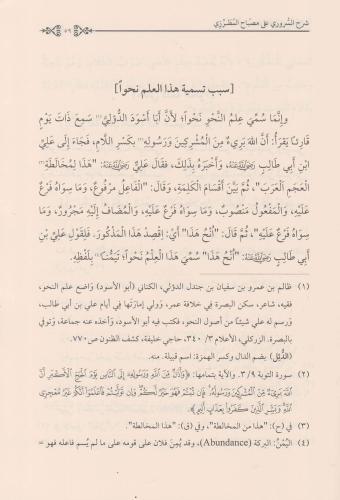 شرح السُّروري على مصباح المُطَرِّزِي
٥٩
[سبب تسمية هذا العلم نحواً]
وإِنَّمَا سُمِّيَ عِلْمُ النَّحْوِ نَحْواً؛ لأَنَّ أَبَا أَسْوَدَ الدُّؤَلِيَّ(١) سَمِعَ ذَاتَ يَوْمٍ
قَارِئاً يَقْرَأُ: أَنَّ اللهَ بَرِيءٌ مِنَ الْمُشْرِكِينَ وَرَسُولِهِ(٢) بكَسْرِ اللَّامِ، فَجَاءَ إِلَى عَلِيِّ
ابْنِ أَبِي طَالِبٍ رَضِيَ اللَّهُ عَنْهُ، وَأَخْبَرَهُ بِذَلِكَ، فَقَالَ عَلِيٌّ رَضِيَ اللَّهُ عَنْهُ: "هَذَا لِمُخَالَطَةِ(٣)
الْعَجَمِ الْعَرَبَ"، ثُمَّ بَيَّنَ أَقْسَامَ الْكَلِمَةِ، وَقَالَ: "الْفَاعِلُ مَرْفُوعٌ، وَمَا سِوَاهُ فَرْعٌ
عَلَيْهِ، وَالْمَفْعُولُ مَنْصُوبٌ، وَمَا سِوَاهُ فَرْعٌ عَلَيْهِ، وَالْمُضَافُ إِلَيْهِ مَجْرُورٌ، وَمَا
سِوَاهُ فَرْعٌ عَلَيْهِ"، ثُمَّ قَالَ: "اُنْحُ هَذَا" أَيْ: اِقْصِدْ هَذَا الْمَذْكُورَ. فَلِقَوْلِ عَلِيِّ بْنِ
أَبِي طَالِبٍ رَضِيَ اللَّهُ عَنْهُ: "اُنْحُ هَذَا" سُمِّيَ هَذَا الْعِلْمُ نَحْواً؛ تَيَمُّناً(٤) بِلَفْظِهِ.
(١) ظالم بن عمرو بن سفيان بن جندل الدؤلي، الكناني (أبو الأسود) واضع علم النحو،
فقيه، شاعر، سكن البصرة في خلافة عمر، وُولي إمارتَها في أيام علي بن أبي طالب،
ورسم له علي شيئاً من أصول النحو، فكتب فيه أبو الأسود، وأخذه عنه جماعة، وتوفي
بالبصرة. الزركلي، الأعلام ٣/ ٣٤٠، حاجي خليفة، كشف الظنون ص٧٧٠.
(الدُّئِل) بضم الدال وكسر الهمزة: اسم قبيلة. منه.
(٢) سورة التوبة ٣/٩. والآية بتمامها: ﴿وَأَذَانٌ مِنَ اللَّهِ وَرَسُولِهِ إِلَى النَّاسِ يَوْمَ الْحَجِّ الْأَكْبَرِ أَنَّ
اللَّهَ بَرِيءٌ مِنَ الْمُشْرِكِينَ وَرَسُولُهُ فَإِنْ تُبْتُمْ فَهُوَ خَيْرٌ لَكُمْ وَإِنْ تَوَلَّيْتُمْ فَاعْلَمُوا أَنَّكُمْ غَيْرُ مُعْجِزِي
اللَّهِ وَبَشِّرِ الَّذِينَ كَفَرُوا بِعَذَابٍ أَلِيمٍ﴾.
(٣) في (ح): "هذا من المخالطة"، وفي (ق): "هذا المخالطة".
(٤) اليُمْنُ: البركة (Abundance)، وقد يُمِنَ فلان على قومه على ما لم يُسم فاعله فهو =